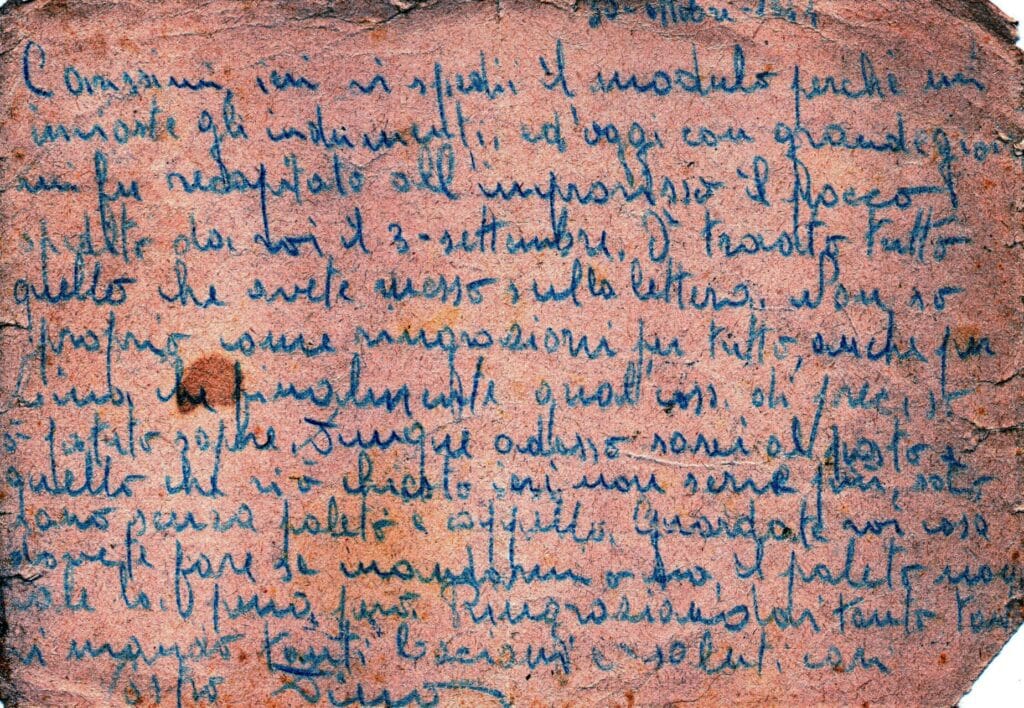 ottobre-1944
Carissimi, ieri vi spedii il modulo perché mi
inviaste gli indumenti, ed'oggi con grande gioia
mi fu recapitato all'improvviso il pacco
spedito da voi il 3-settembre. Ò trovato tutto
quello che avete messo sulla lettera. Non so
proprio come ringraziarvi per tutto, anche per
Lino, che finalmente qual cosa di
ò potuto sapere. Dunque adesso sarei al posto e
quello che vi ò chiesto ieri, non serve più, solo
sono senza paletò e cappello. Guardate voi cosa
dovete fare se mandarmi o no, il paletò non
vale la pena, però. Ringraziandovi tanto
vi mando tanti bacioni e saluti cari
Dino